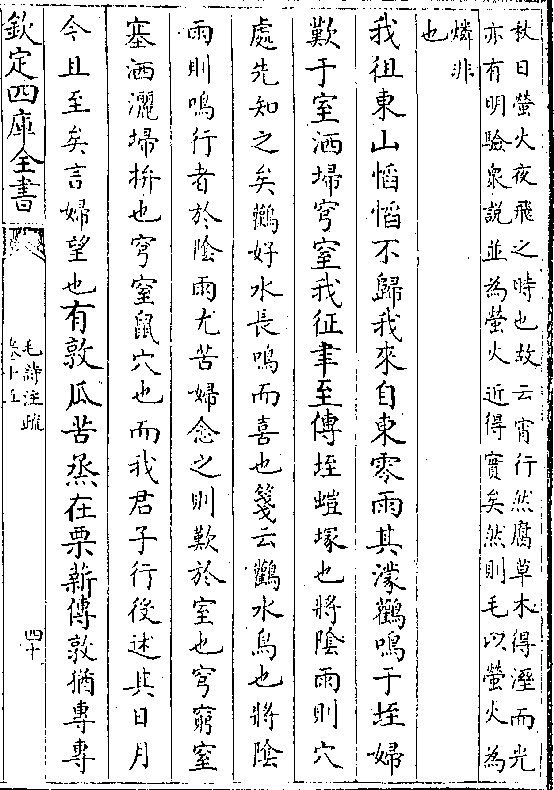 秋日螢火夜飛之時也故云宵行然腐草木得溼而光
亦有明驗衆説並為螢火近得實矣然則毛以螢火為
燐非
也
我徂東山慆慆不歸我來自東零雨其濛鸛鳴于垤婦
歎于室洒埽穹窒我征聿至傳垤螘塚也將陰雨則穴
處先知之矣鸛好水長鳴而喜也箋云鸛水鳥也將陰
雨則鳴行者於陰雨尤苦婦念之則歎於室也穹窮窒
塞洒灑埽拚也穹窒鼠穴也而我君子行役述其日月
今且至矣言婦望也有敦瓜苦烝在栗薪傳敦猶專專
欽定四庫全書
毛詩注疏
卷十五
四十